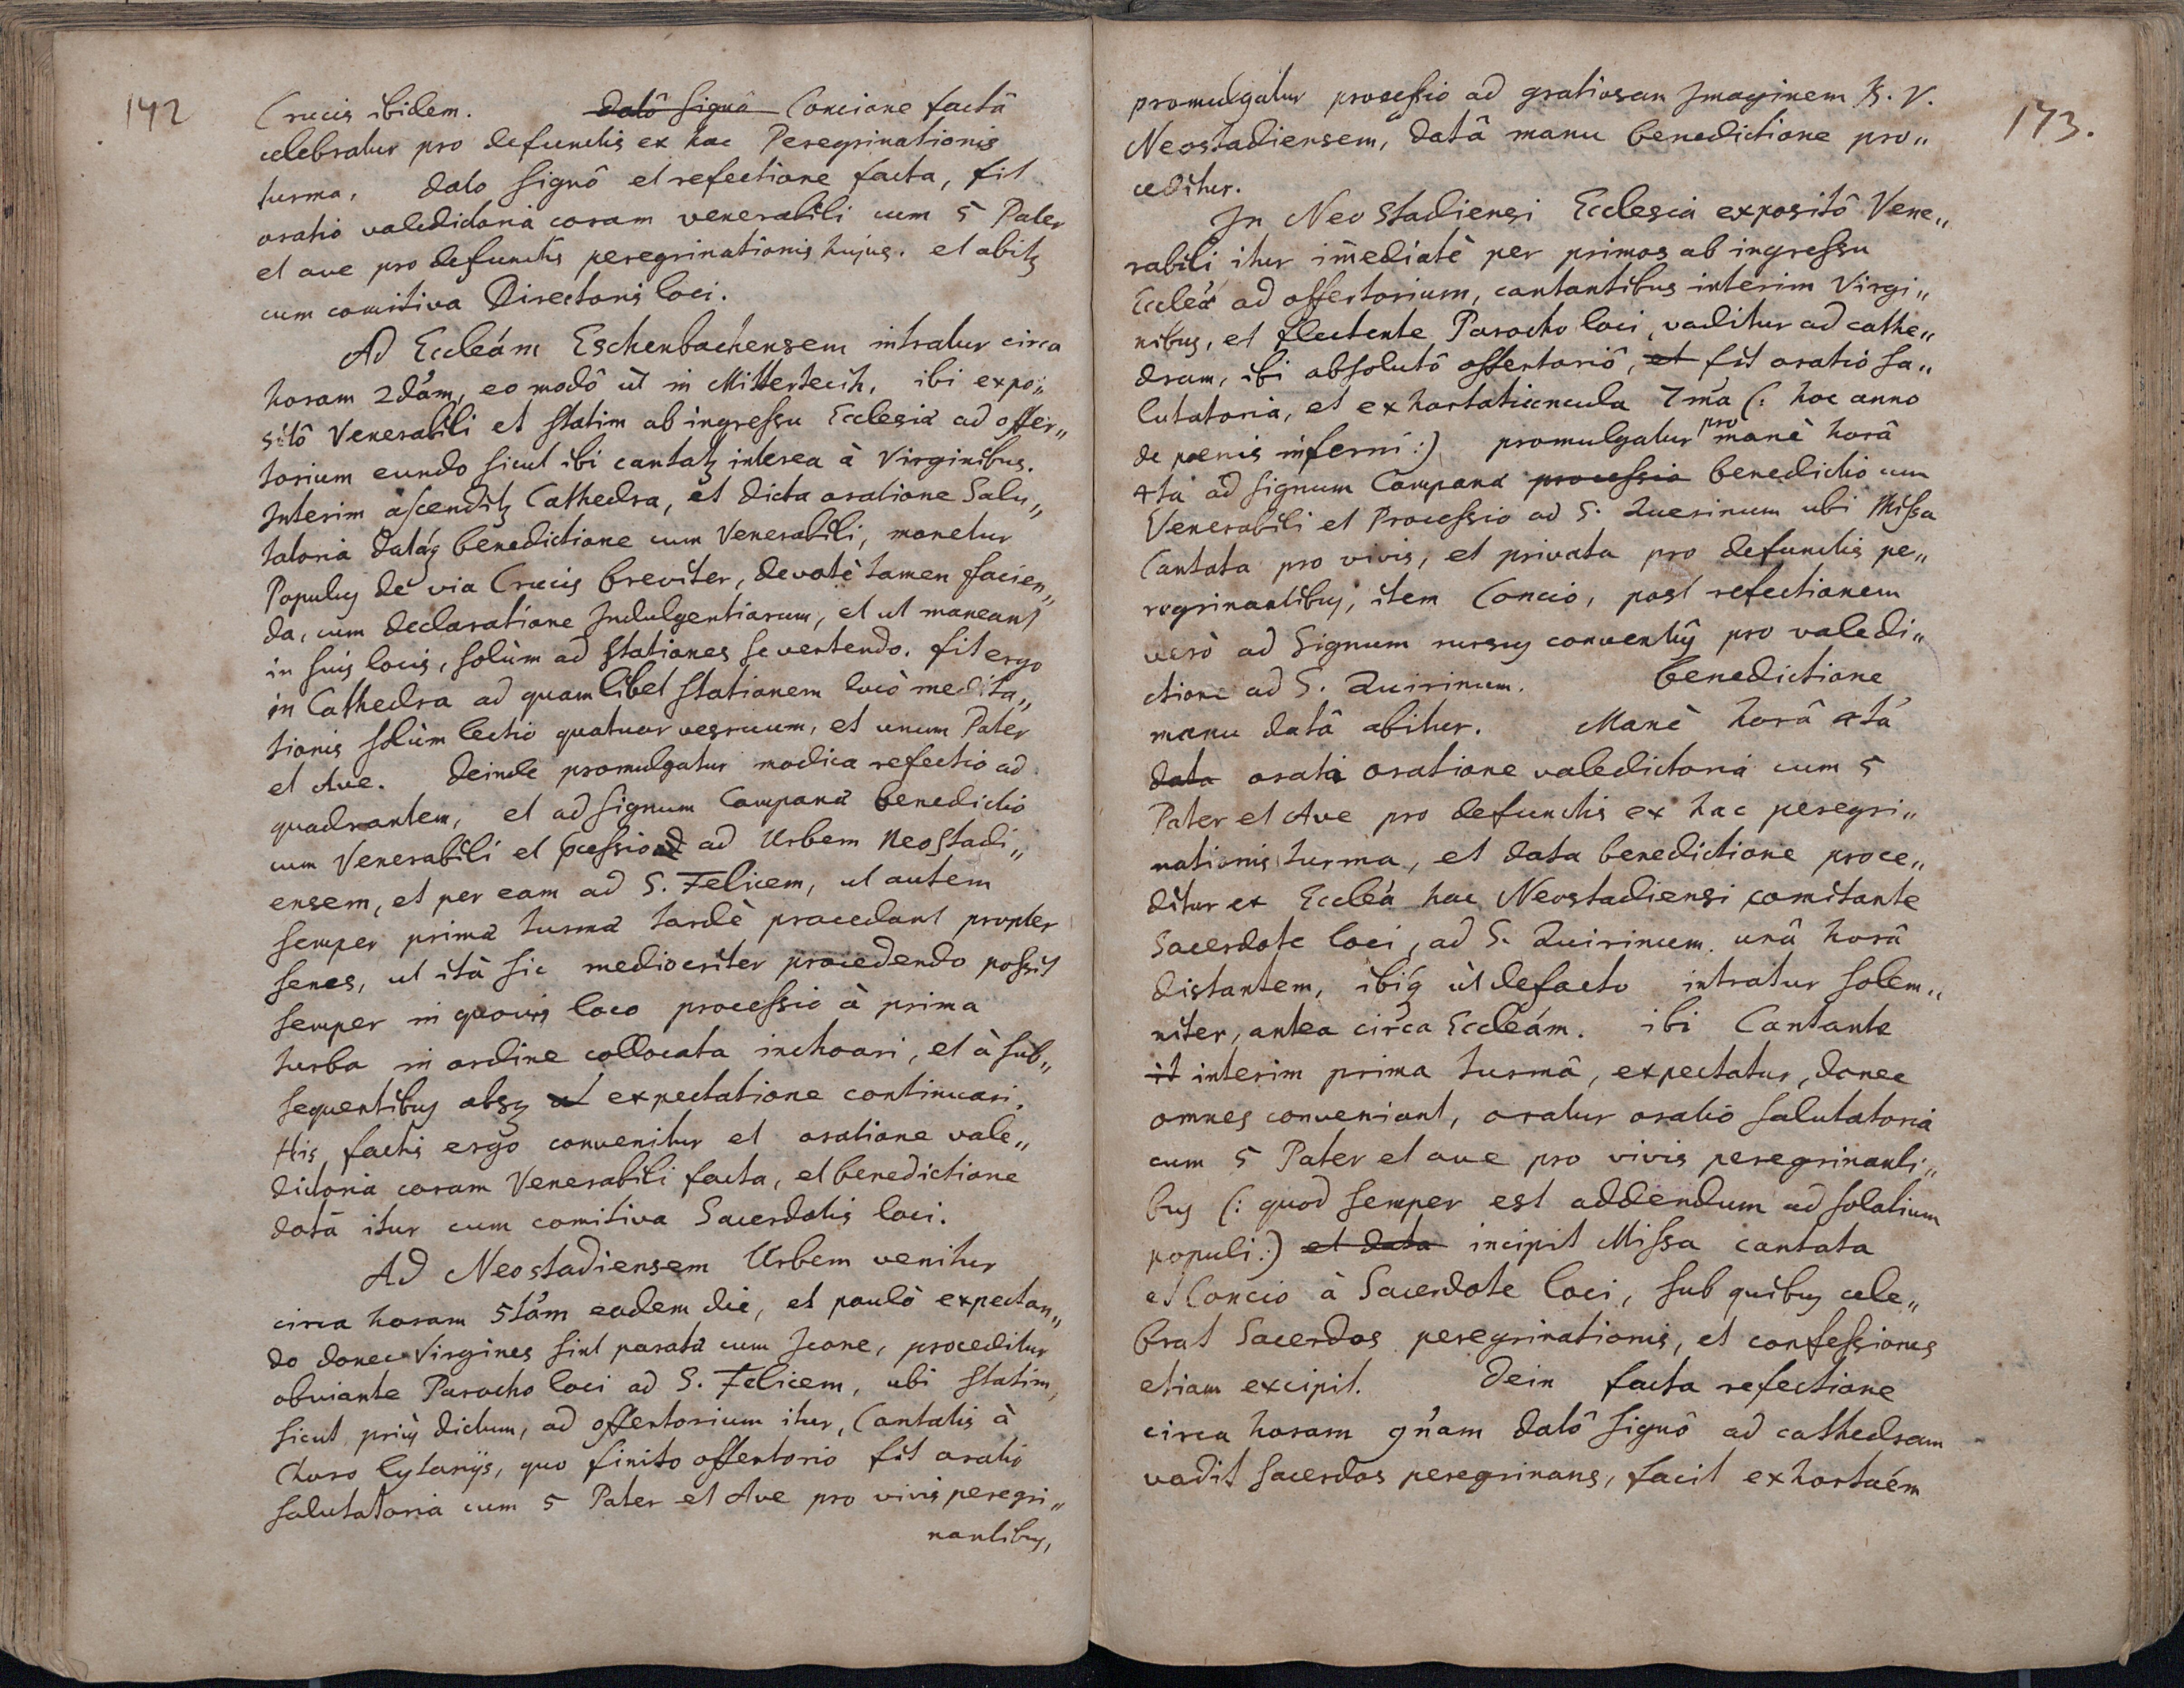 142
Crucis ibidem. datô signô Concione factâ
celebratur pro defunctis ex hac Peregrinationis
turma. dato signô et refectione facta, fit
oratio valedictoria coram venerabili cum 5 Pater
et ave pro defunctis peregrinationis hujus. et abitq
cum comitiva Directoris loci.
Ad Eccleám Eschenbachensem intratur circa
horam 2dám, eo modô ùt in Mitterteich, ibi expo„
sitô Venerabili et statim ab ingressu Ecclesiæ ad offer„
torium eundo sicut ibi cantatq interea à Virginibus.
Interim ascenditq Cathedra, et dicta oratione Salu„
tatoria datáq benedictione cum Venerabili, monetur
Populus de via Crucis breviter, devotè tamen facien„
da, cum declaratione Indulgentiarum, et ut maneant
in suis locis, solùm ad stationes se vertendo. fit ergo
in Cathedra ad quamlibet stationem locò medita„
tionis solùm lectio quatuor versuum, et unum Pater
et Ave. deinde promulgatur modica refectio ad
quadrantem, et ad signum Campanæ benedictio
cum Venerabili et pcessio ad Urbem Neostadi„
ensem, et per eam ad S. Felicem, ut autem
semper primæ turmæ tardè procedant propter
senes, ut ità sic mediocriter procedendo possit
semper in quovis loco processio à prima
turba in ordine collocata inchoari, et à sub„
sequentibus absq ul expectatione continuari.
His factis ergo convenitur et oratione vale„
dictoria coram Venerabili facta, et benedictione
datâ itur cum comitiva Sacerdotis loci.
Ad Neostadiensem Urbem venitur
circa horam 5tám eadem die, et paulò expectan„
do donec Virgines sint paratæ cum Icone, proceditur
obviante Parocho loci ad S. Felicem, ubi statim,
sicut priùs dictum, ad offertorium itur, Cantatis à
Choro lytanijs, quo finito offertorio fit oratio
salutatoria cum 5 Pater et Ave pro vivis peregri„
nantibus,
143.
promulgatur processio ad gratiosam Imaginem B. V.
Neostadiensem, datâ manu benedictione pro„
ceditur.
In Neostadiensi Ecclesia expositô Vene„
rabili itur im̄ediatè per primos ab ingressu
Eccleæ ad offertorium, cantantibus interim Virgi„
nibus, et flectente Parocho loci, vaditur ad cathe„
dram, ibi absolutô offertoriô, et fit oratio sa„
lutatoria, et exhortatiuncula 7má (: hoc anno
de poenis inferni :) promulgatur pro manè horâ
4tá ad signum Campanæ processio benedictio cum
Venerabili et Processio ad S. Quirinum ubi Missa
Cantata pro vivis, et privata pro defunctis pe„
regrinantibus, item Concio, post refectionem
verò ad Signum rursus conventus pro valedi„
ctione ad S. Quirinum. benedictione
manu datâ abitur. Manè horâ 4tá
data orata oratione valedictoria cum 5
Pater et Ave pro defunctis ex hac peregri„
nationis turma, et data benedictione proce„
ditur ex Eccleá hac Neostadiensi comitante
Sacerdote loci, ad S. Quirinum unâ horâ
distantem, ibiq ùt defacto intratur solem„
niter, antea circa Eccleám. ibi Cantante
it interim prima turmâ, expectatur, donec
omnes conveniant, oratur oratio salutatoria
cum 5 Pater et ave pro vivis peregrinanti„
bus (: quod semper est addendum ad solatium
populi :) et data incipit Missa cantata
et Concio à Sacerdote loci, sub quibus cele„
brat Sacerdos peregrinationis, et confessiones
etiam excipit. Dein facta refectione
circa horam 9nám datô signô ad cathedram
vadit sacerdos peregrinans, facit exhortaém